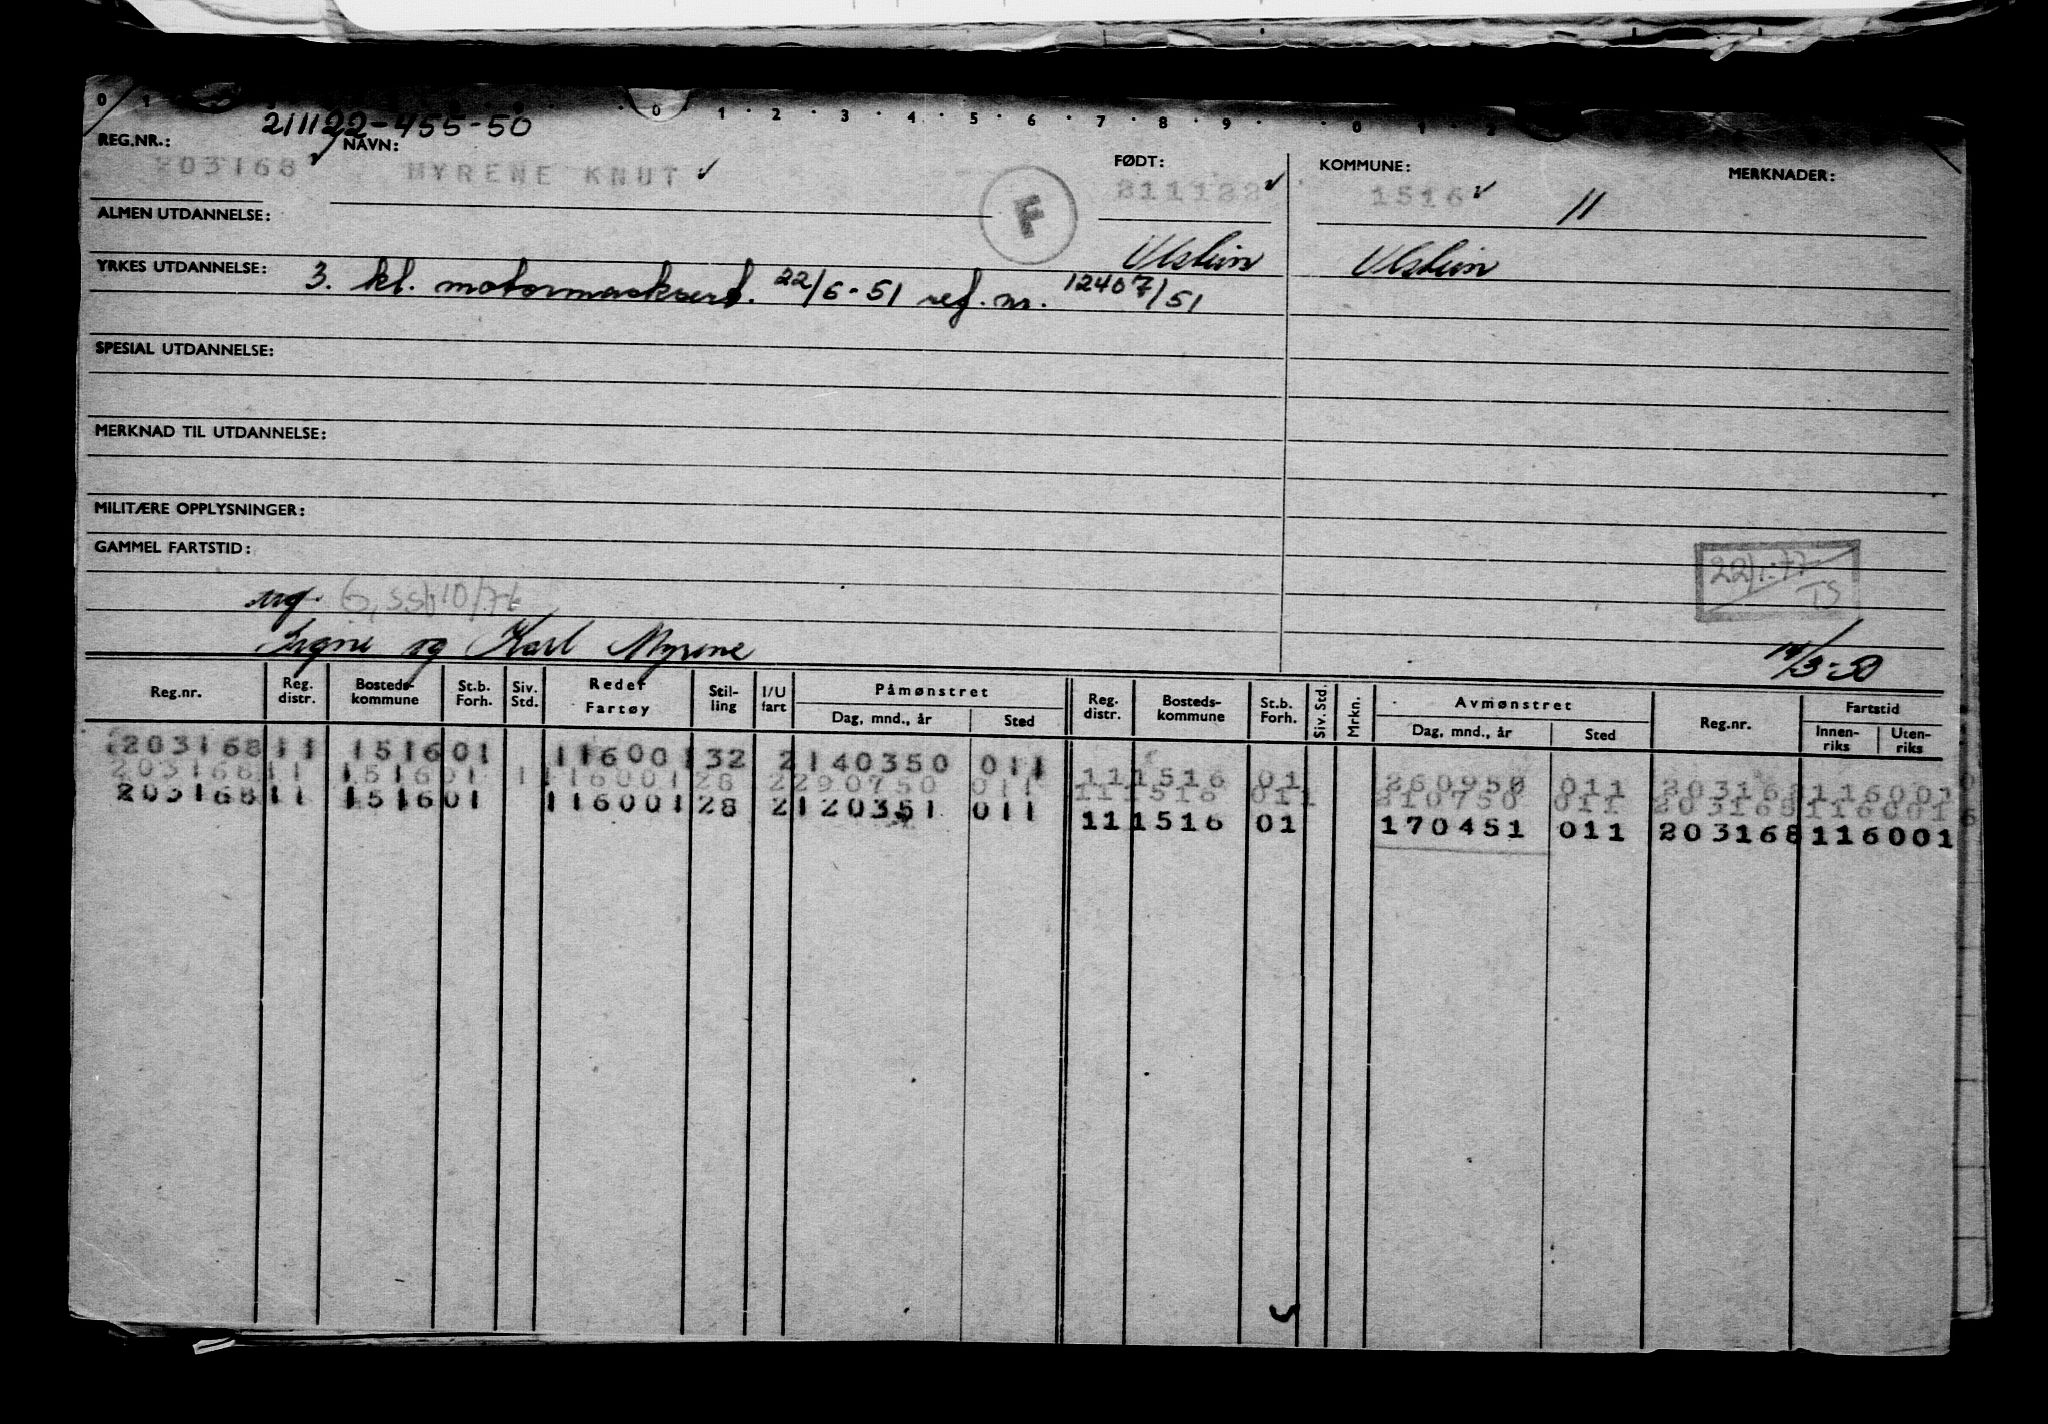 211122-455-50
REG.NR.: NAVN: FØDT: KOMMUNE: MERKNADER:
203168 MYRENE KNUT 211122 1516 11
F
ALMEN UTDANNELSE:
Ulstein Ulstein
YRKES UTDANNELSE: 3. kl. motormasksert. 22/6-51 ref. nr. 12407/51
SPESIAL UTDANNELSE:
MERKNAD TIL UTDANNELSE:
MILITÆRE OPPLYSNINGER:
GAMMEL FARTSTID:
TS
ug.
og Karl Myrene 14/3-50
Reg.nr. Reg. distr. Bosteds-kommune St.b. Forh. Siv. Std. Rederi Fartøy Stil-ling I/U fart Påmønstret Dag, mnd., år Sted Reg. distr. Bosteds-kommune St.b. Forh. Siv. Std. Mrkn. Avmønstret Dag, mnd., år Sted Reg.nr. Fartstid Innen-riks Uten-riks
203168 11 1516 01 116001 32 2 140350 011
203168 11 1516 01 1 116001 28 2 290750 011 11 1516 01 260950 011 203168 116001
11 1516 011 210750 011 203168 116001 6
203168 11 1516 01 116001 28 2 120351 011 11 1516 01 170451 011 203168 116001